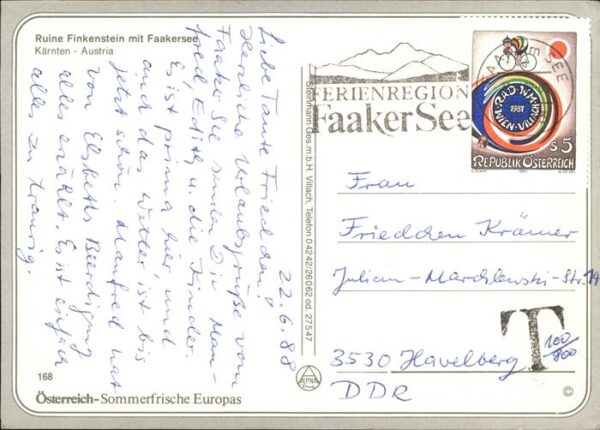 Ruine Finkenstein mit Faakersee
Kärnten - Austria
22.6.88
Liebe Tante Friedchen!
Herzliche Urlaubsgrüße vom
Faaker See senden Dir Man-
fred, Edith u. die Kinder.
Es ist prima hier, und
auch das Wetter ist bis
jetzt schön. Manfred hat
von Elsbeths Beerdigung
alles erzählt. Es ist einfach
alles zu traurig.
168
Österreich-Sommerfrische Europas
Steinmann Ges.m.b.H. Villach, Telefon 04242/26062 od. 27547
FERIENREGION
Faaker See
AM SEE
RAD-WM
WIEN-VILLACH
1987
S 5
REPUBLIK ÖSTERREICH
Frau
Friedchen Krämer
Julian-Marchlewski-Str. 14
T
100/
3530 Havelberg
DDR
©